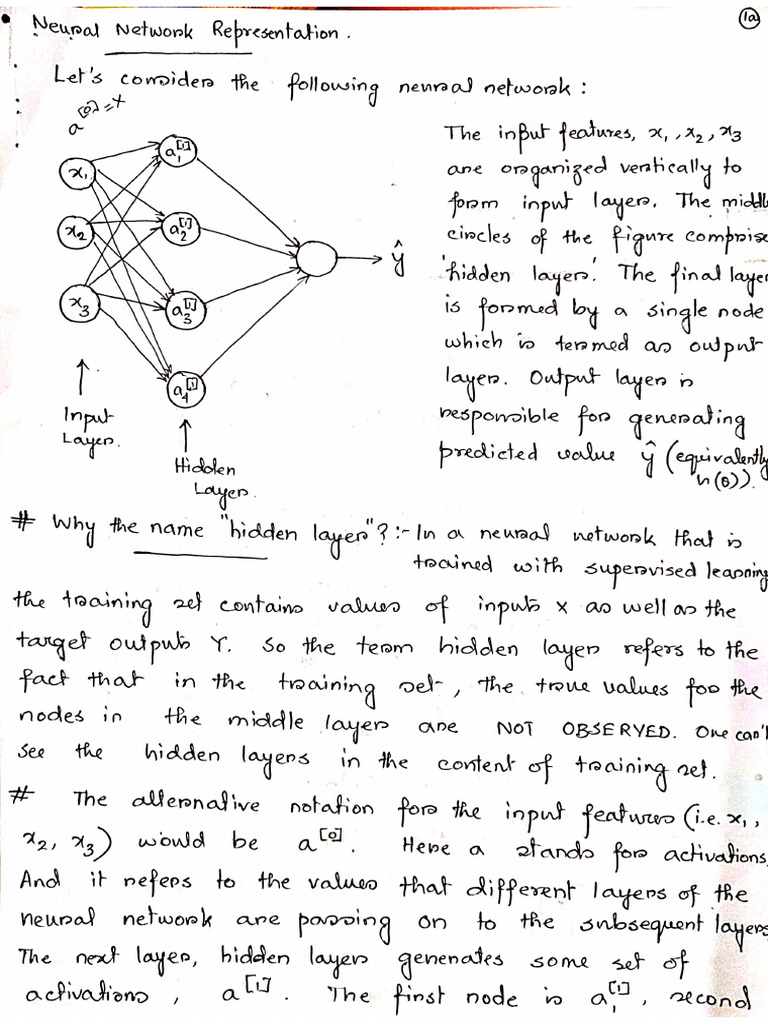 1a
Neural Network Representation.
Let's consider the following neural network:
a^[0] = X
x₁
x₂
x₃
a₁^[1]
a₂^[1]
a₃^[1]
a₄^[1]
ŷ
Input
Layer.
Hidden
Layer.
The input features, x₁, x₂, x₃
are organized vertically to
form input layer. The middle
circles of the figure comprise
'hidden layer'. The final layer
is formed by a single node
which is termed as output
layer. Output layer is
responsible for generating
predicted value ŷ (equivalently
h(θ)).
# Why the name "hidden layer"? :- In a neural network that is
trained with supervised learning
the training set contains values of inputs X as well as the
target outputs Y. So the term hidden layer refers to the
fact that in the training set, the true values for the
nodes in the middle layer are NOT OBSERVED. One can't
see the hidden layers in the content of training set.
# The alternative notation for the input features (i.e. x₁,
x₂, x₃) would be a^[0]. Here a stands for activations,
And it refers to the values that different layers of the
neural network are passing on to the subsequent layers
The next layer, hidden layer generates some set of
activations, a^[1]. The first node is a₁^[1], second